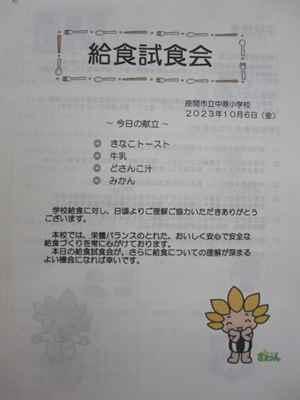 給食試食会
座間市立中原小学校
2023年10月6日(金)
~ 今日の献立 ~
◎ きなこトースト
◎ 牛乳
◎ どさんこ汁
◎ みかん
学校給食に対し、日頃よりご理解ご協力いただきありがとう
ございます。
本校では、栄養バランスのとれた、おいしく安心で安全な
給食づくりを常に心がけております。
本日の給食試食会が、さらに給食についての理解が深まる
よい機会になれば幸いです。